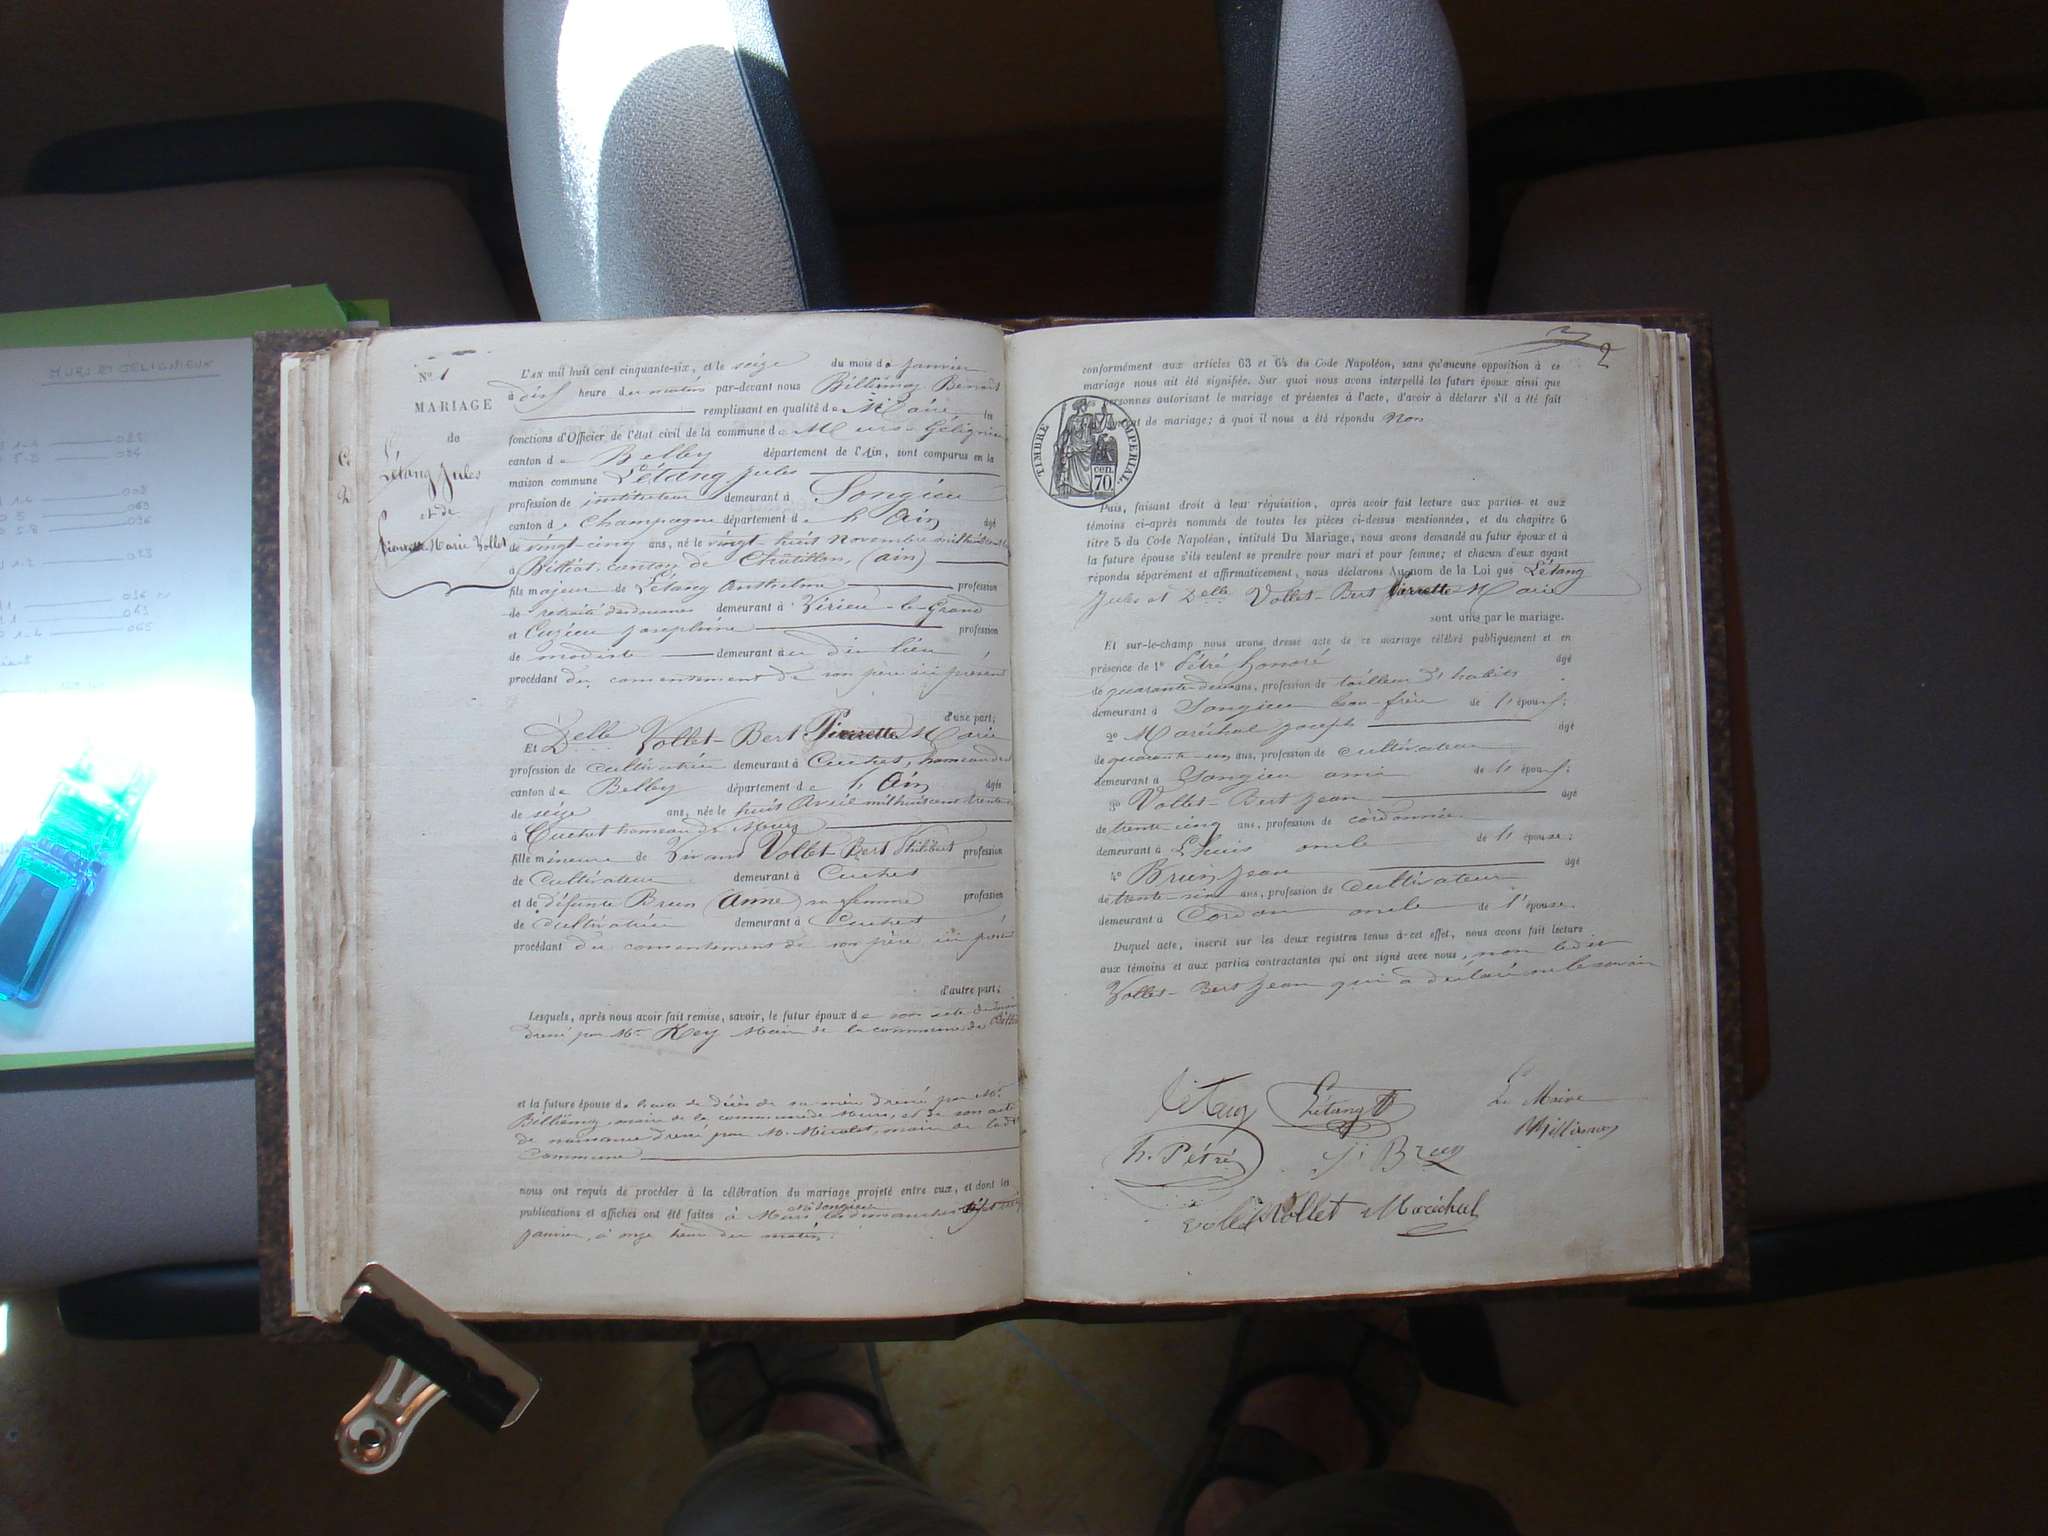 MURS ET GELIGNIEUX
No 1
MARIAGE
de
Létang Jules
et de
Pierrette Marie Vollet
L'AN mil huit cent cinquante-six, et le seize du mois de Janvier
à dix heure du matin par-devant nous Billiémaz Benoit
remplissant en qualité de Maire les
fonctions d'Officier de l'état civil de la commune de Murs & Gélignieux
canton de Belley département de l'Ain, sont comparus en la
maison commune Létang Jules
profession de instituteur demeurant à Songieu
canton de Champagne département de l'Ain âgé
de vingt-cinq ans, né le vingt-huit Novembre mil huit cent
à Billiat, canton de Châtillon, (ain)
fils majeur de Létang Anthelme profession
de retraité des douanes demeurant à Virieu-le-Grand
et Cuzieu Joséphine profession
de modiste demeurant au dit lieu
procédant du consentement de son père ici présent
d'une part;
Et Delle Vollet-Bert Pierrette Marie
profession de cultivatrice demeurant à Cuchet, hameau de
canton de Belley département de l'Ain âgée
de seize ans, née le huit Avril mil huit cent trente
à Cuchet hameau de Murs
fille mineure de vivant Vollet-Bert Philibert profession
de Cultivateur demeurant à Cuchet
et de défunte Brun (Anne) sa femme profession
de cultivatrice demeurant à Cuchet
procédant du consentement de son père ici présent
d'autre part;
Lesquels, après nous avoir fait remise, savoir, le futur époux de son acte de
dressé par Mr Rey Maire de la commune de
et la future épouse de l'acte de décès de sa mère dressé par Mr
Billiémaz, maire de la commune de Murs, et de son acte
de naissance dressé par M. maire de la dte
commune
nous ont requis de procéder à la célébration du mariage projeté entre eux, et dont les
publications et affiches ont été faites à Murs et à Songieu les dimanches
janvier, à onze heure du matin.
2
conformément aux articles 63 et 64 du Code Napoléon, sans qu'aucune opposition à ce
mariage nous ait été signifiée. Sur quoi nous avons interpellé les futurs époux ainsi que
les personnes autorisant le mariage et présentes à l'acte, d'avoir à déclarer s'il a été fait
de mariage; à quoi il nous a été répondu Non
TIMBRE IMPERIAL
70 cen.
Puis, faisant droit à leur réquisition, après avoir fait lecture aux parties et aux
témoins ci-après nommés de toutes les pièces ci-dessus mentionnées, et du chapitre 6
titre 5 du Code Napoléon, intitulé Du Mariage, nous avons demandé au futur époux et à
la future épouse s'ils veulent se prendre pour mari et pour femme; et chacun d'eux ayant
répondu séparément et affirmativement, nous déclarons Au nom de la Loi que Létang
Jules et Delle Vollet-Bert Pierrette Marie
sont unis par le mariage.
Et sur-le-champ nous avons dressé acte de ce mariage célébré publiquement et en
présence de 1° Pétré honoré âgé
de quarante-deux ans, profession de tailleur d'habits
demeurant à Songieu beau-frère de l'époux;
2° Maréchal joseph âgé
de quarante-un ans, profession de cultivateur
demeurant à Songieu ami de l'époux;
3° Vollet-Bert Jean âgé
de trente-cinq ans, profession de cordonnier
demeurant à Lhuis oncle de l'épouse;
4° Brun Jean âgé
de trente-six ans, profession de cultivateur
demeurant à Cordon oncle de l'épouse.
Duquel acte, inscrit sur les deux registres tenus à cet effet, nous avons fait lecture
aux témoins et aux parties contractantes qui ont signé avec nous, non ledit
Vollet-Bert Jean qui a déclaré ne le savoir
Létang Létang
Le Maire
Billiémaz
h. Pétré Jn Brun
Vollet Maréchal